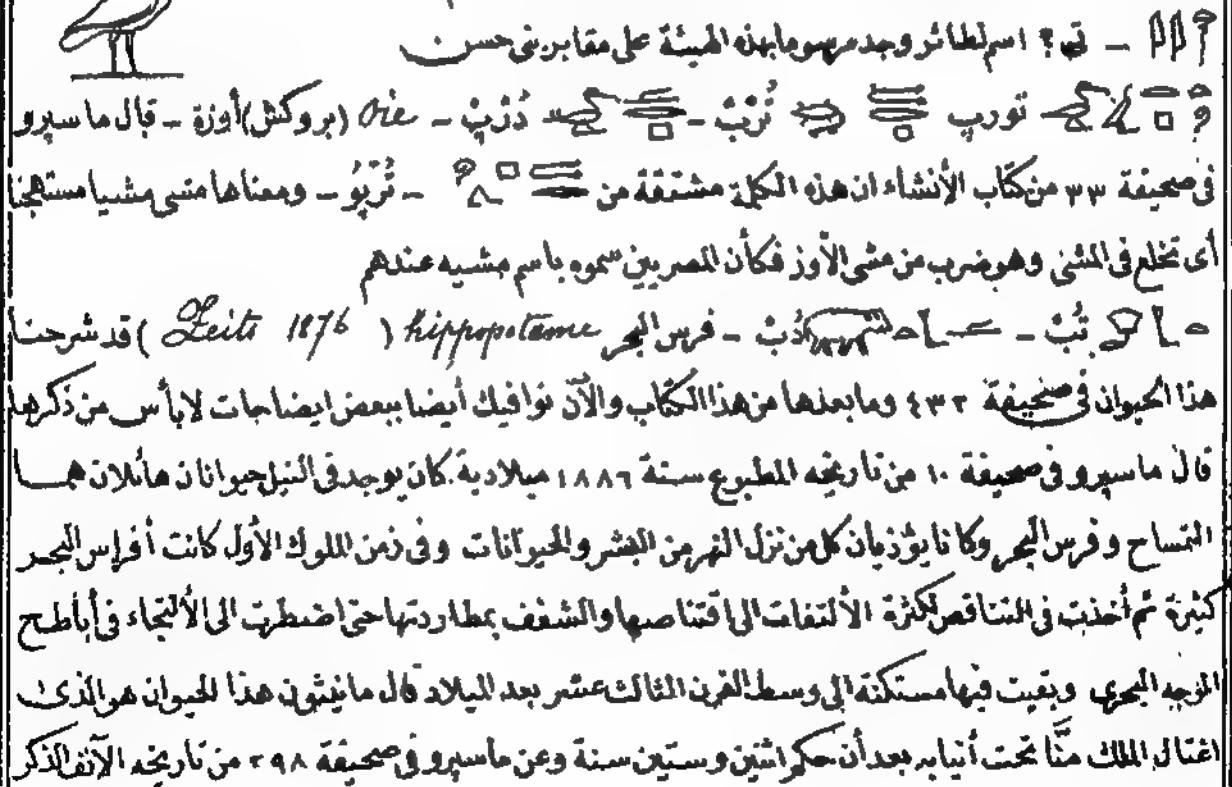 – تى؟ اسم لطائر وجد مرسوما بهذه الهيئة على مقابر بنى حسن
تورپ – تُرْپْ – دُرْپْ – Oie (بروكش) أوزة – قال ماسپرو
فى صحيفة ٣٣ من كتاب الأنشاء ان هذه الكلمة مشتقة من – تُرْپُو – ومعناها مشى مشيا مستهجنا
أى تخلع فى المشى وهو ضرب من مشى الأوز فكأن المصريين سموه باسم مشيه عندهم
تُبْ – دُبْ – فرس البحر hippopotame ( Zeits 1876 ) قد شرحنا
هذا الحيوان فى صحيفة ٤٣٢ وما بعدها من هذا الكتاب والآن نوافيك أيضا ببعض ايضاحات لا بأس من ذكرها
قال ماسپرو فى صحيفة ١٠ من تاريخه المطبوع سنة ١٨٨٦ ميلادية كان يوجد فى النيل حيوانان هائلان هما
التمساح وفرس البحر وكانا يؤذيان كل من نزل النهر من البشر والحيوانات وفى زمن الملوك الأول كانت أفراس البحر
كثيرة ثم أخذت فى التناقص لكثرة الألتفات الى اقتناصها والشغف بمطاردتها حتى اضطرت الى الألتجاء فى أباطح
الوجه البحرى وبقيت فيها مستكنة الى وسط القرن الثالث عشر بعد الميلاد قال مانيثون هذا الحيوان هو الذى
اغتال الملك منَّا تحت أنيابه بعد أن حكم اثنين وستين سنة وعن ماسپرو فى صحيفة ٢٩٨ من تاريخه الآنف الذكر